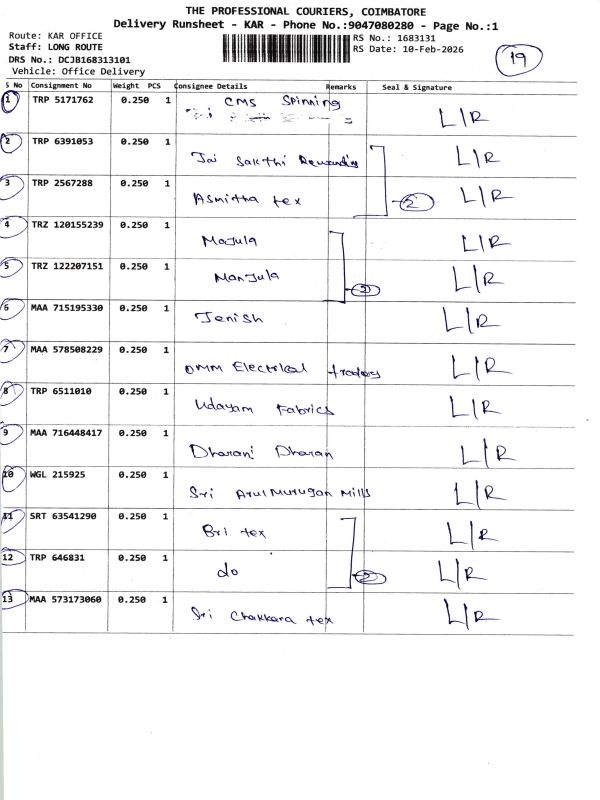 THE PROFESSIONAL COURIERS, COIMBATORE
Delivery Runsheet - KAR - Phone No.:9047080280 - Page No.:1
Route: KAR OFFICE
Staff: LONG ROUTE
DRS No.: DCJB168313101
Vehicle: Office Delivery
RS No.: 1683131
RS Date: 10-Feb-2026
19
S No Consignment No Weight PCS Consignee Details Remarks Seal & Signature
1 TRP 5171762 0.250 1 CMS Spinning L/R
2 TRP 6391053 0.250 1 Jai Sakthi L/R
3 TRP 2567288 0.250 1 Asmitha tex 2 L/R
4 TRZ 120155239 0.250 1 Majula L/R
5 TRZ 122207151 0.250 1 Manjula 2 L/R
6 MAA 715195330 0.250 1 Jenish L/R
7 MAA 578508229 0.250 1 OMM Electrical traders L/R
8 TRP 6511010 0.250 1 Udayam Fabrics L/R
9 MAA 716448417 0.250 1 Dharani Dharan L/R
10 WGL 215925 0.250 1 Sri Arul Murugan Mills L/R
11 SRT 63541290 0.250 1 Bri tex L/R
12 TRP 646831 0.250 1 do 2 L/R
13 MAA 573173060 0.250 1 Sri Chakkara tex L/R